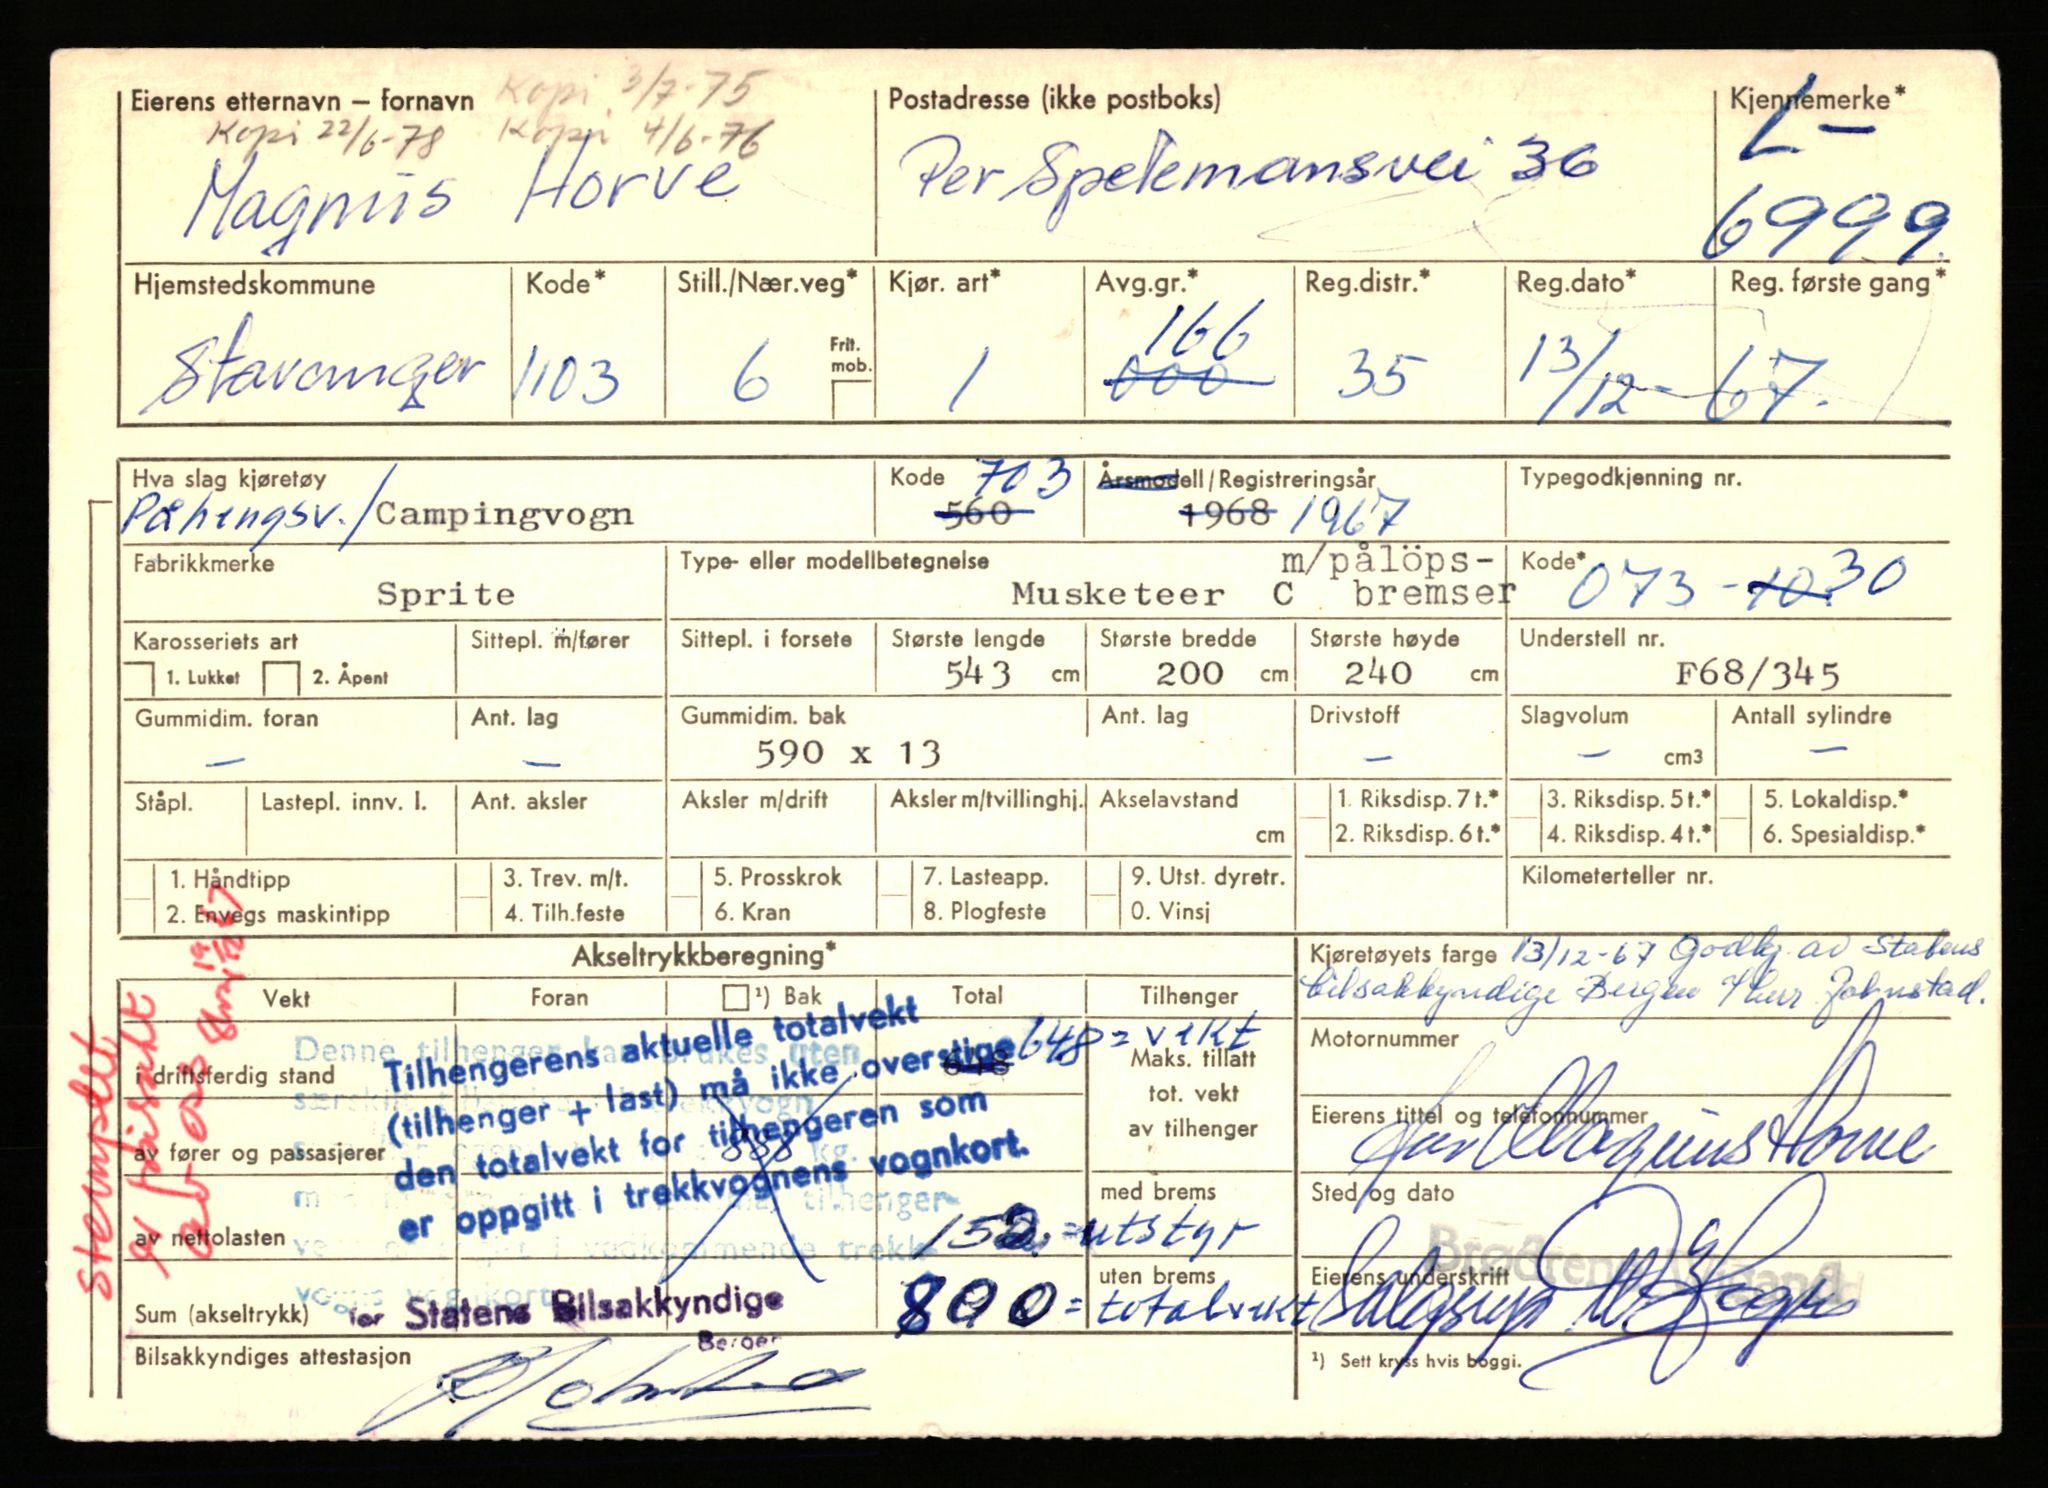 Eierens etternavn – fornavn Kopi 3/7-75 Postadresse (ikke postboks) Kjennemerke*
Kopi 22/6-78 Kopi 4/6-76 L-
Magnus Horve Per Spelemansvei 36 6999
Hjemstedskommune Kode* Still./Nær.veg* Kjør. art* Avg.gr.* Reg.distr.* Reg.dato* Reg. første gang*
166
Stavanger 1103 6 Frit. mob. 1 000 35 13/12-67.
Hva slag kjøretøy Kode 703 Årsmodell/Registreringsår Typegodkjenning nr.
Påhengsv./Campingvogn 560 1968 1967
Fabrikkmerke Type- eller modellbetegnelse m/pålöps- Kode*
Sprite Musketeer C bremser 073-10.30
Karosseriets art Sittepl. m/fører Sittepl. i forsete Største lengde Største bredde Største høyde Understell nr.
1. Lukket 2. Åpent 543 cm 200 cm 240 cm F68/345
Gummidim. foran Ant. lag Gummidim. bak Ant. lag Drivstoff Slagvolum Antall sylindre
– – 590 x 13 – – cm3 –
Ståpl. Lastepl. innv. l. Ant. aksler Aksler m/drift Aksler m/tvillinghj. Akselavstand 1. Riksdisp. 7 t.* 3. Riksdisp. 5 t.* 5. Lokaldisp.*
cm 2. Riksdisp. 6 t.* 4. Riksdisp. 4 t.* 6. Spesialdisp.*
1. Håndtipp 3. Trev. m/t. 5. Prosskrok 7. Lasteapp. 9. Utst. dyretr. Kilometerteller nr.
2. Envegs maskintipp 4. Tilh.feste 6. Kran 8. Plogfeste 0. Vinsj
Akseltrykkberegning* Kjøretøyets farge 13/12-67 Godkj. av Statens
Vekt Foran 1) Bak Total Tilhenger bilsakkyndige Bergen v/herr Johnstad.
Tilhengerens aktuelle totalvekt
(tilhenger + last) må ikke overstige
den totalvekt for tilhengeren som
er oppgitt i trekkvognens vognkort.
Denne tilhenger kan brukes uten
i driftsferdig stand 648 648 = vekt Maks. tillatt tot. vekt av tilhenger Motornummer
av fører og passasjerer 888 kg. Eierens tittel og telefonnummer
for Magnus Horve
av nettolasten 152 = utstyr med brems Sted og dato
Brødrene
Sum (akseltrykk) for Statens Bilsakkyndige 800 = totalvekt uten brems Eierens underskrift
Bergen
Bilsakkyndiges attestasjon 1) Sett kryss hvis boggi.
Stemplet